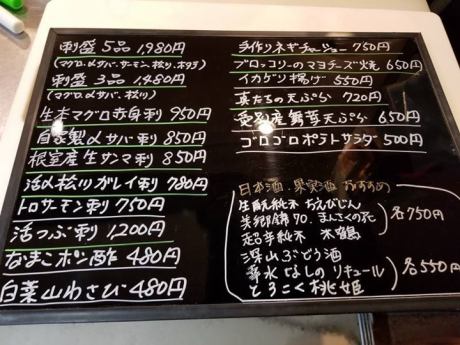 刺盛 5品 1,980円
(マグロ、〆サバ、サーモン、松り、ホタテ)
刺盛 3品 1,480円
(マグロ、〆サバ、松り)
生本マグロ赤身刺 950円
自家製〆サバ刺 850円
根室産生サンマ刺 850円
活〆松川ガレイ刺 780円
トロサーモン刺 750円
活つぶ刺 1,200円
なまこポン酢 480円
白菜山わさび 480円
手作りネギチャーシュー 750円
ブロッコリーのマヨチーズ焼 650円
イカゲソ揚げ 550円
真たちの天ぷら 720円
愛別産舞茸天ぷら 650円
ゴロゴロポテトサラダ 500円
日本酒・果実酒 おすすめ
生酛純米 ちえびじん
美郷錦70 まんさくの花
超辛純米 米鶴
各750円
深山ぶどう酒
洋なしのリキュール
とろこく桃姫
各550円